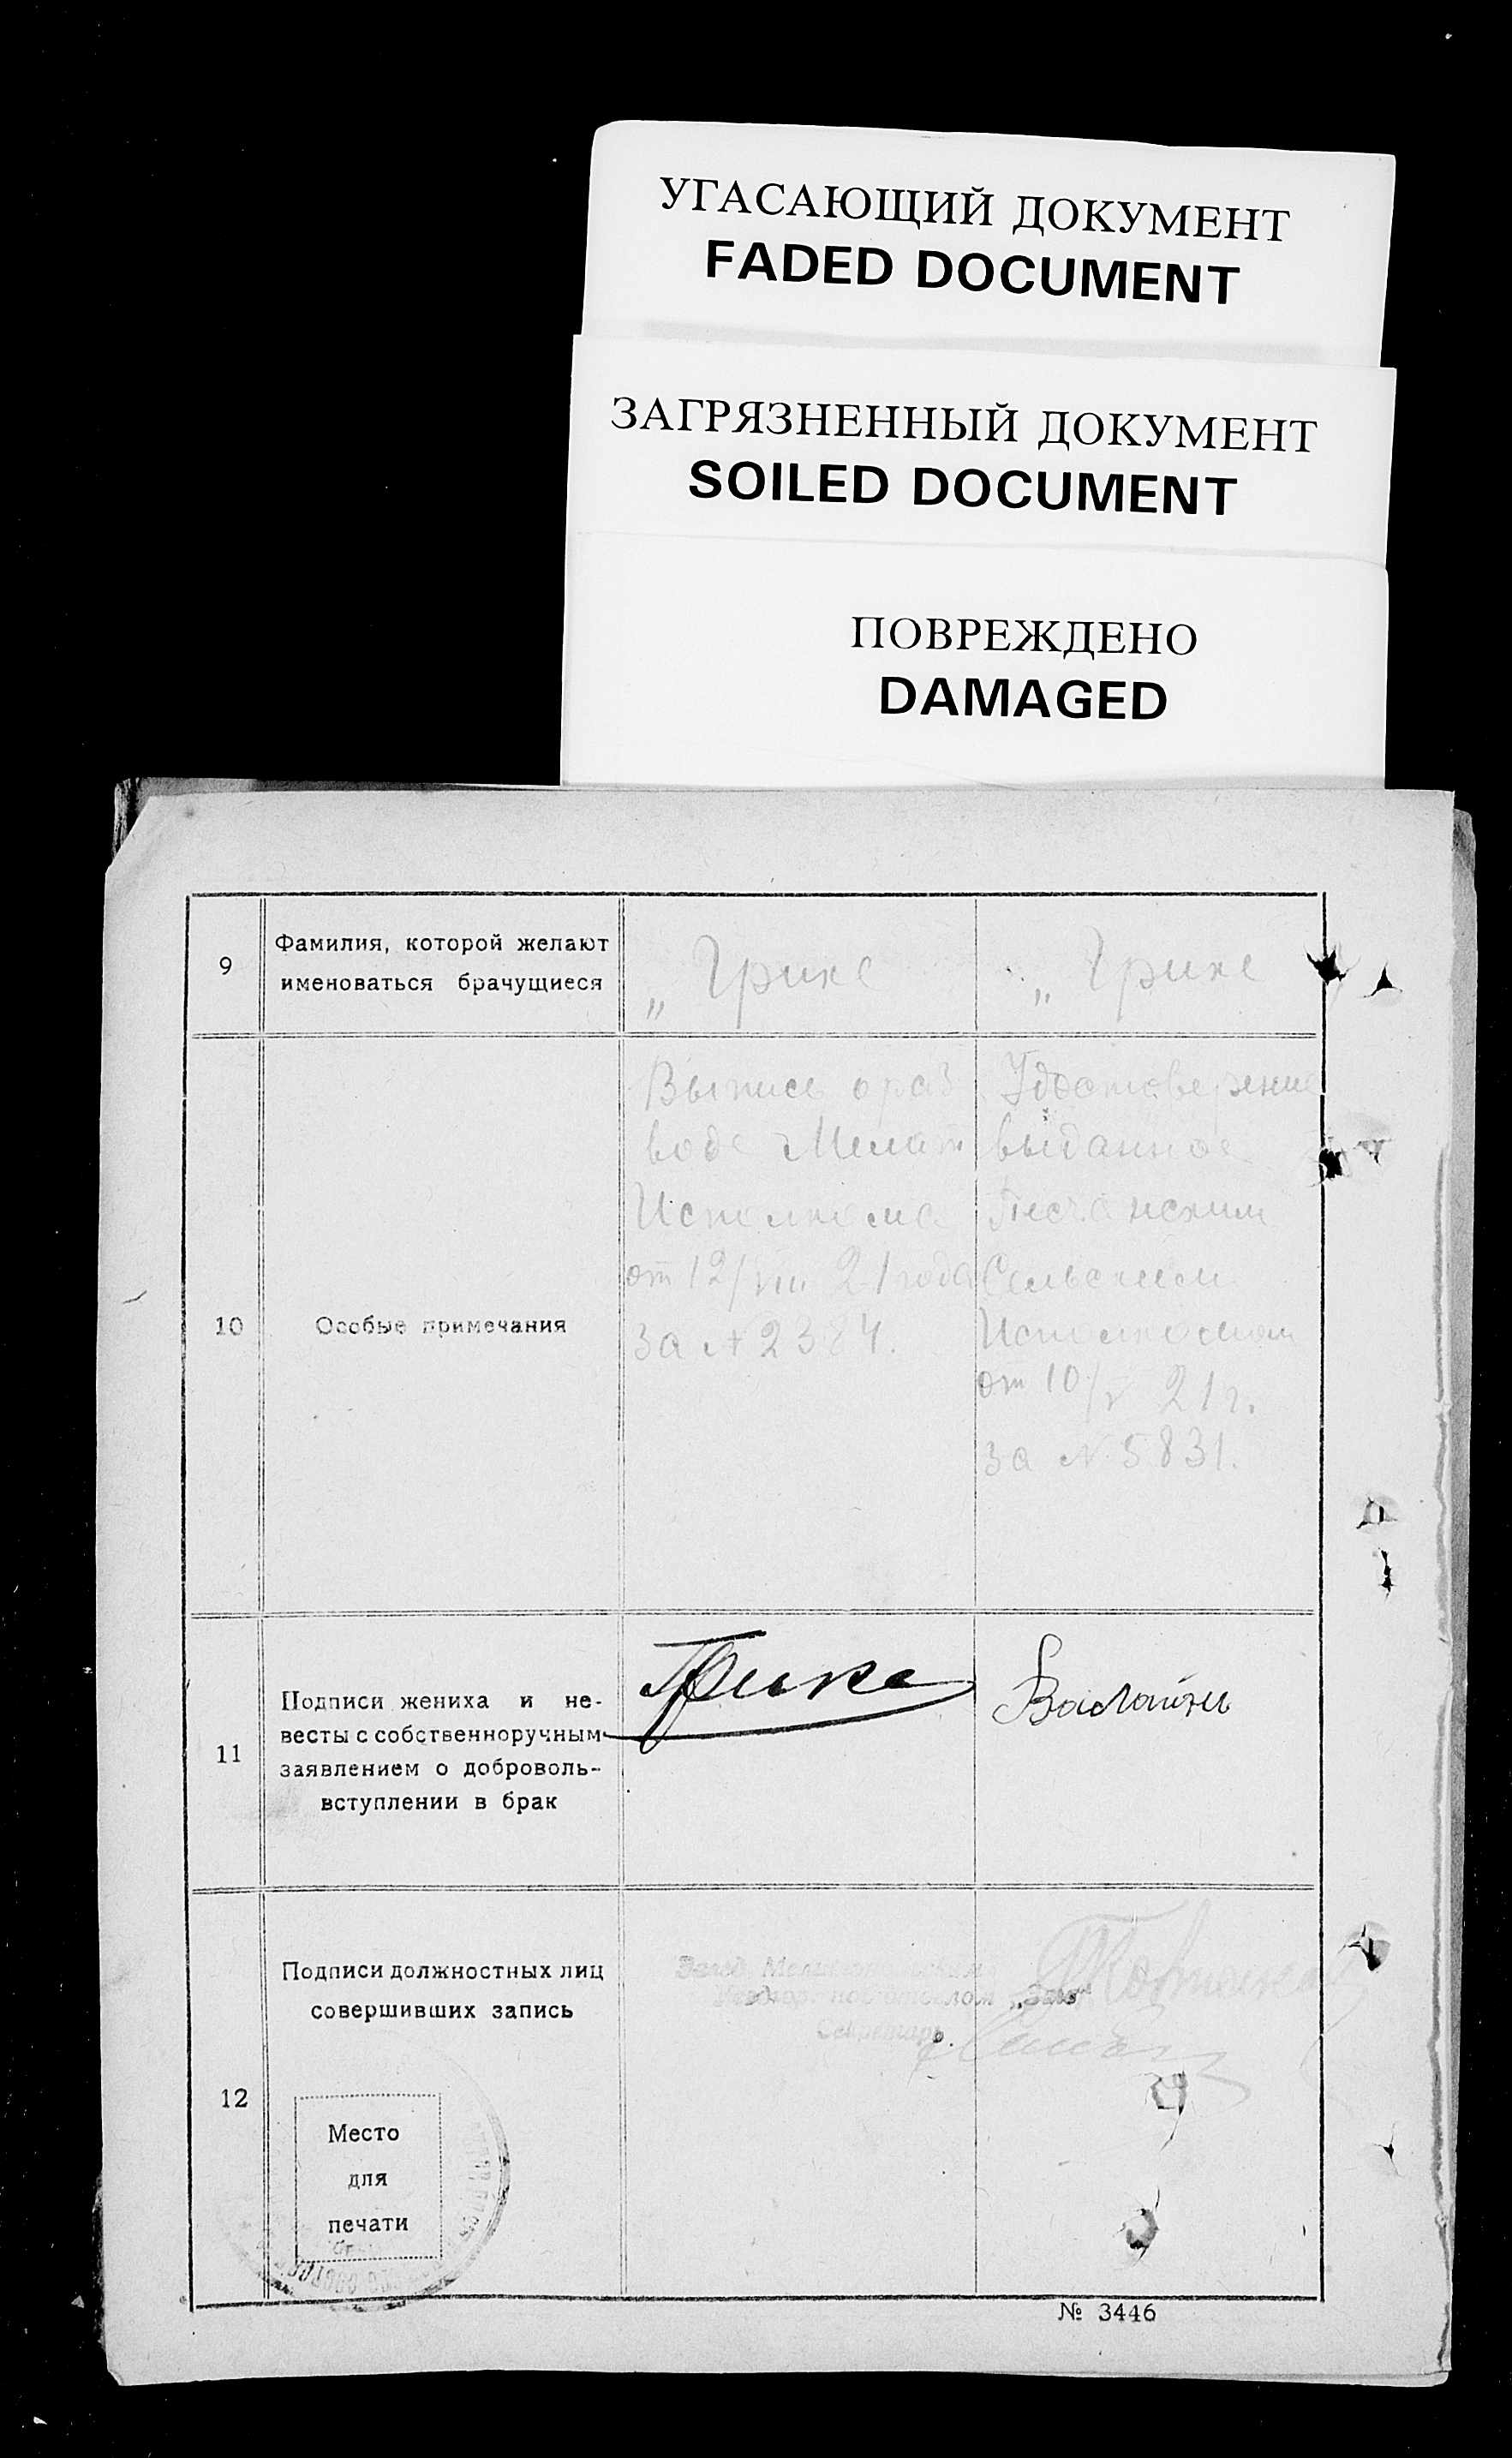 УГАСАЮЩИЙ ДОКУМЕНТ
FADED DOCUMENT
ЗАГРЯЗНЕННЫЙ ДОКУМЕНТ
SOILED DOCUMENT
ПОВРЕЖДЕНО
DAMAGED
9
Фамилия, которой желают
именоваться брачущиеся
„ Грике
„ Грике
10
Особые примечания
Выпись о раз
воде Мелит
Исполкома
от 12/VIII 21 года
за № 2384.
Удостоверение
выданное
Песчанским
Сельским
Исполкомом
от 10/V 21 г.
за № 5831.
11
Подписи жениха и не-
весты с собственноручным
заявлением о доброволь-
вступлении в брак
Грике
12
Подписи должностных лиц
совершивших запись
Завед.
"Загс"
Секретарь
Место
для
печати
№ 3446